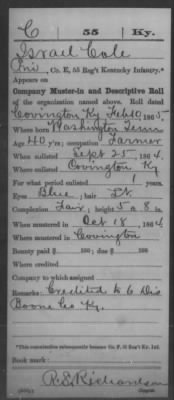 C | 55 | Ky.
Israel Cole
Pri, Co. E, 55 Reg't Kentucky Infantry.*
Appears on
Company Muster-in and Descriptive Roll
of the organization named above. Roll dated
Covington Ky Feb 10, 1865
Where born Washington Tenn
Age 40 y'rs; occupation Farmer
When enlisted Sept 25, 1864.
Where enlisted Covington Ky
For what period enlisted 1 years.
Eyes Blue; hair Lt.
Complexion Fair; height 5 ft. 8 in.
When mustered in Oct 18, 1864
Where mustered in Covington
Bounty paid $ 100; due $ 100
Where credited
Company to which assigned
Remarks: Credited to 6 Dis
Boone Co Ky.
*This organization subsequently became Co. E, 55 Reg't Ky. Inf.
Book mark:
R.S. Richardson
Copyist.